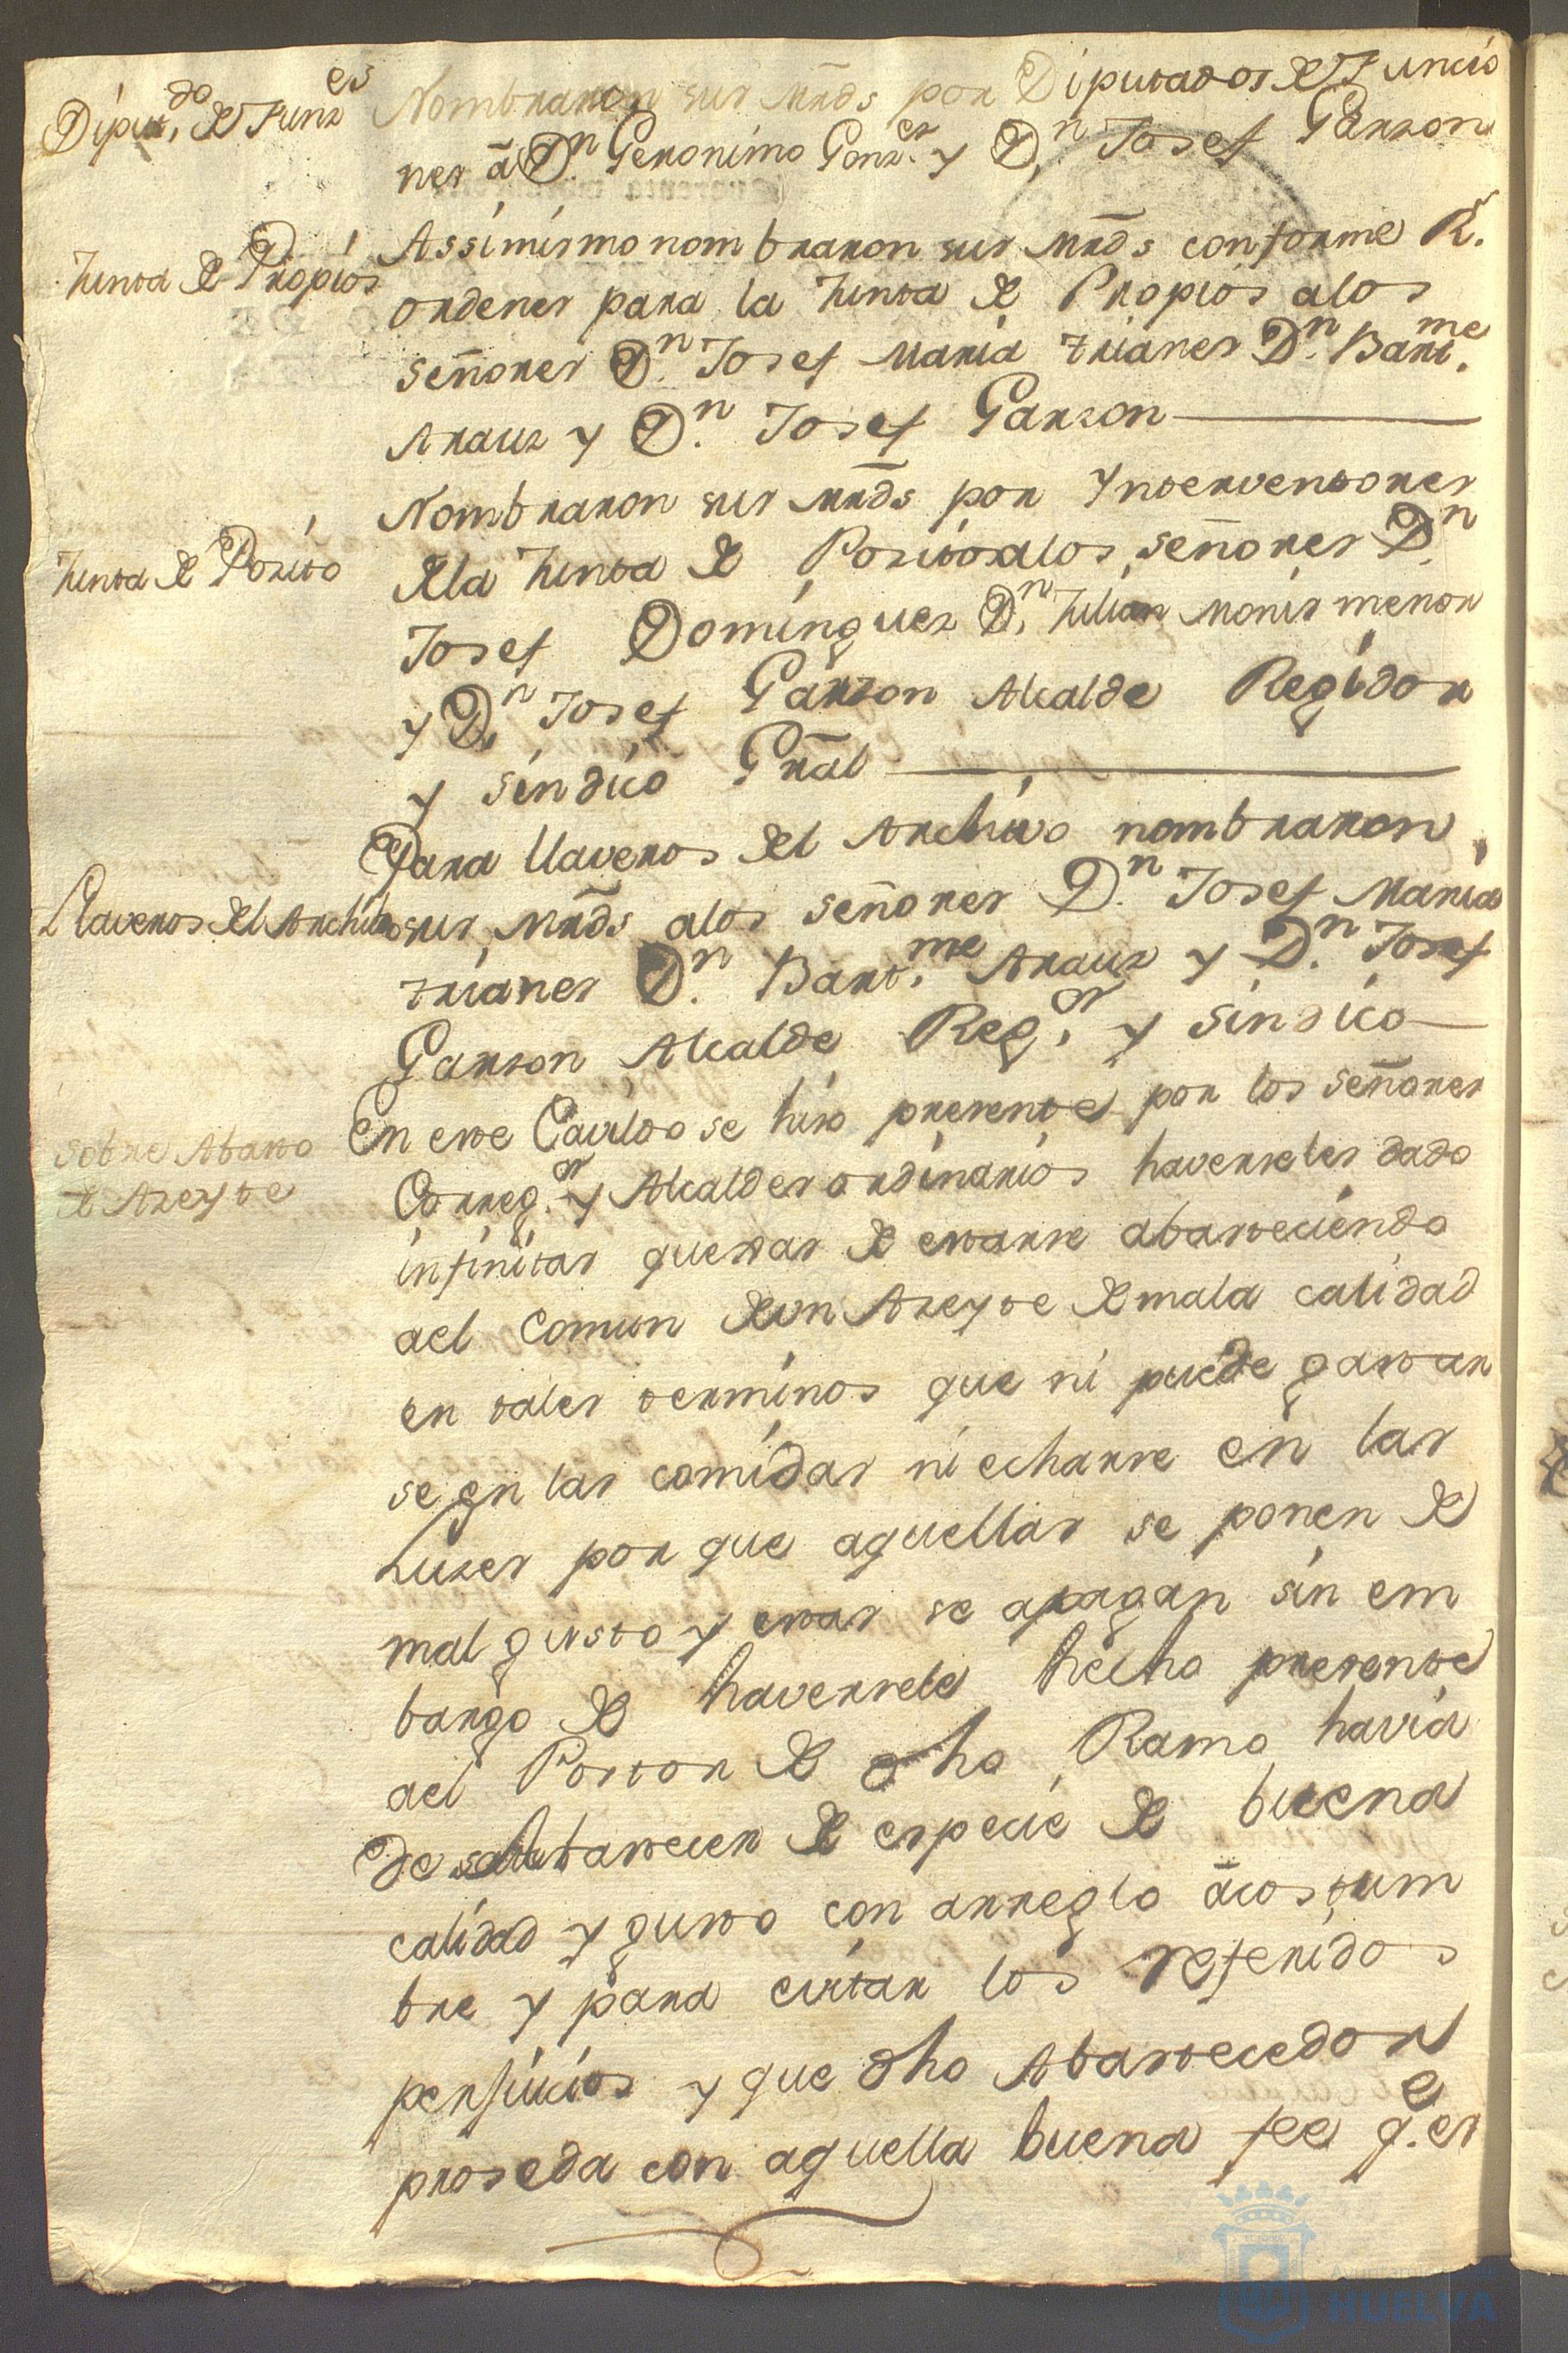 Diput.do de Funz.es
Nombraron sus mrds por Diputados de Funcio
nes â Dn. Geronimo Gonz.ez y Dn. Josef Garzon
Junta de Propios
Assimismo nombraron sus mrds conforme Rs.
ordenes para la Junta de Propios a los
señores Dn. Josef Maria Trianes Dn. Bart.me
Arauz y Dn. Josef Garzon
Junta de Posito
Nombraron sus mrds por Ynterventores
de la Junta de Posito a los señores Dn.
Josef Dominguez Dn. Julian Monis menor
y Dn. Josef Garzon Alcalde Regidor
y sindico Gral
Llaveros del Archibo
Para llaveros del Archivo nombraron
sus mrds a los señores Dn. Josef Maria
Trianes Dn. Bart.me Arauz y Dn. Josef
Garzon Alcalde Reg.or y sindico
Sobre Abasto
de Azeyte
En este Cavildo se hizo presente por los señores
Correg.or y Alcaldes ordinarios haverseles dado
infinitas quexas de estarse abasteciendo
ael comun de un Azeyte de mala calidad
en tales terminos que ni puede gastar
se en las comidas ni echarse en las
Luzes por que aquellas se ponen de
mal gusto y estas se apagan sin em
bargo de haversele hecho presente
ael Postor de dho Ramo havia
de abastecer de especie de buena
calidad y gusto con arreglo â costum
bre y para evitar los referidos
perjuicios y que dho Abastecedor
proseda con aquella buena fee q.e es
HUELVA